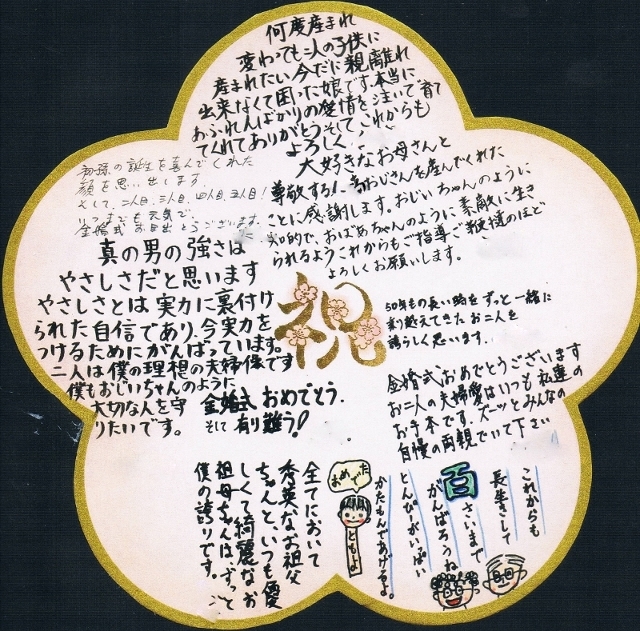 何度産まれ
変わっても二人の子供に
産まれたい今だに親離れ
出来なくて困った娘です。本当に
あふれんばかりの愛情を注いで育て
てくれてありがとうそして これからも
よろしく
大好きなお母さんと
尊敬する
おじさんを産んでくれた
ことに感謝します。おじいちゃんのように
知的で、おばあちゃんのように素敵に生き
られるようこれからもご指導ご鞭撻のほど
よろしくお願いします。
初孫の誕生を喜んでくれた
顔を思い出します
そして、二人目、三人目、四人目、五人目!
いつまでも元気で、
金婚式 お目出とうございます
真の男の強さは
やさしさだと思います
やさしさとは実力に裏付け
られた自信であり、今実力を
つけるためにがんばっています。
二人は僕の理想の夫婦像です
僕もおじいちゃんのように
大切な人を守
りたいです。
祝
50年もの長い時をずっと一緒に
乗り越えてきたお二人を
誇らしく思います。
金婚式おめでとう。
そして 有り難う!
金婚式おめでとうございます
お二人の夫婦愛はいつも私達の
お手本です。ズーッとみんなの
自慢の両親でいて下さい
これからも
長生きして
百さいまで
がんばろうね
とんびがいっぱい
かたもんであげるよ。
おめでた
ともよ
全てにおいて
秀英なお祖父
ちゃんと、いつも優
しくて綺麗なお
祖母ちゃんは、ずっと
僕の誇りです。